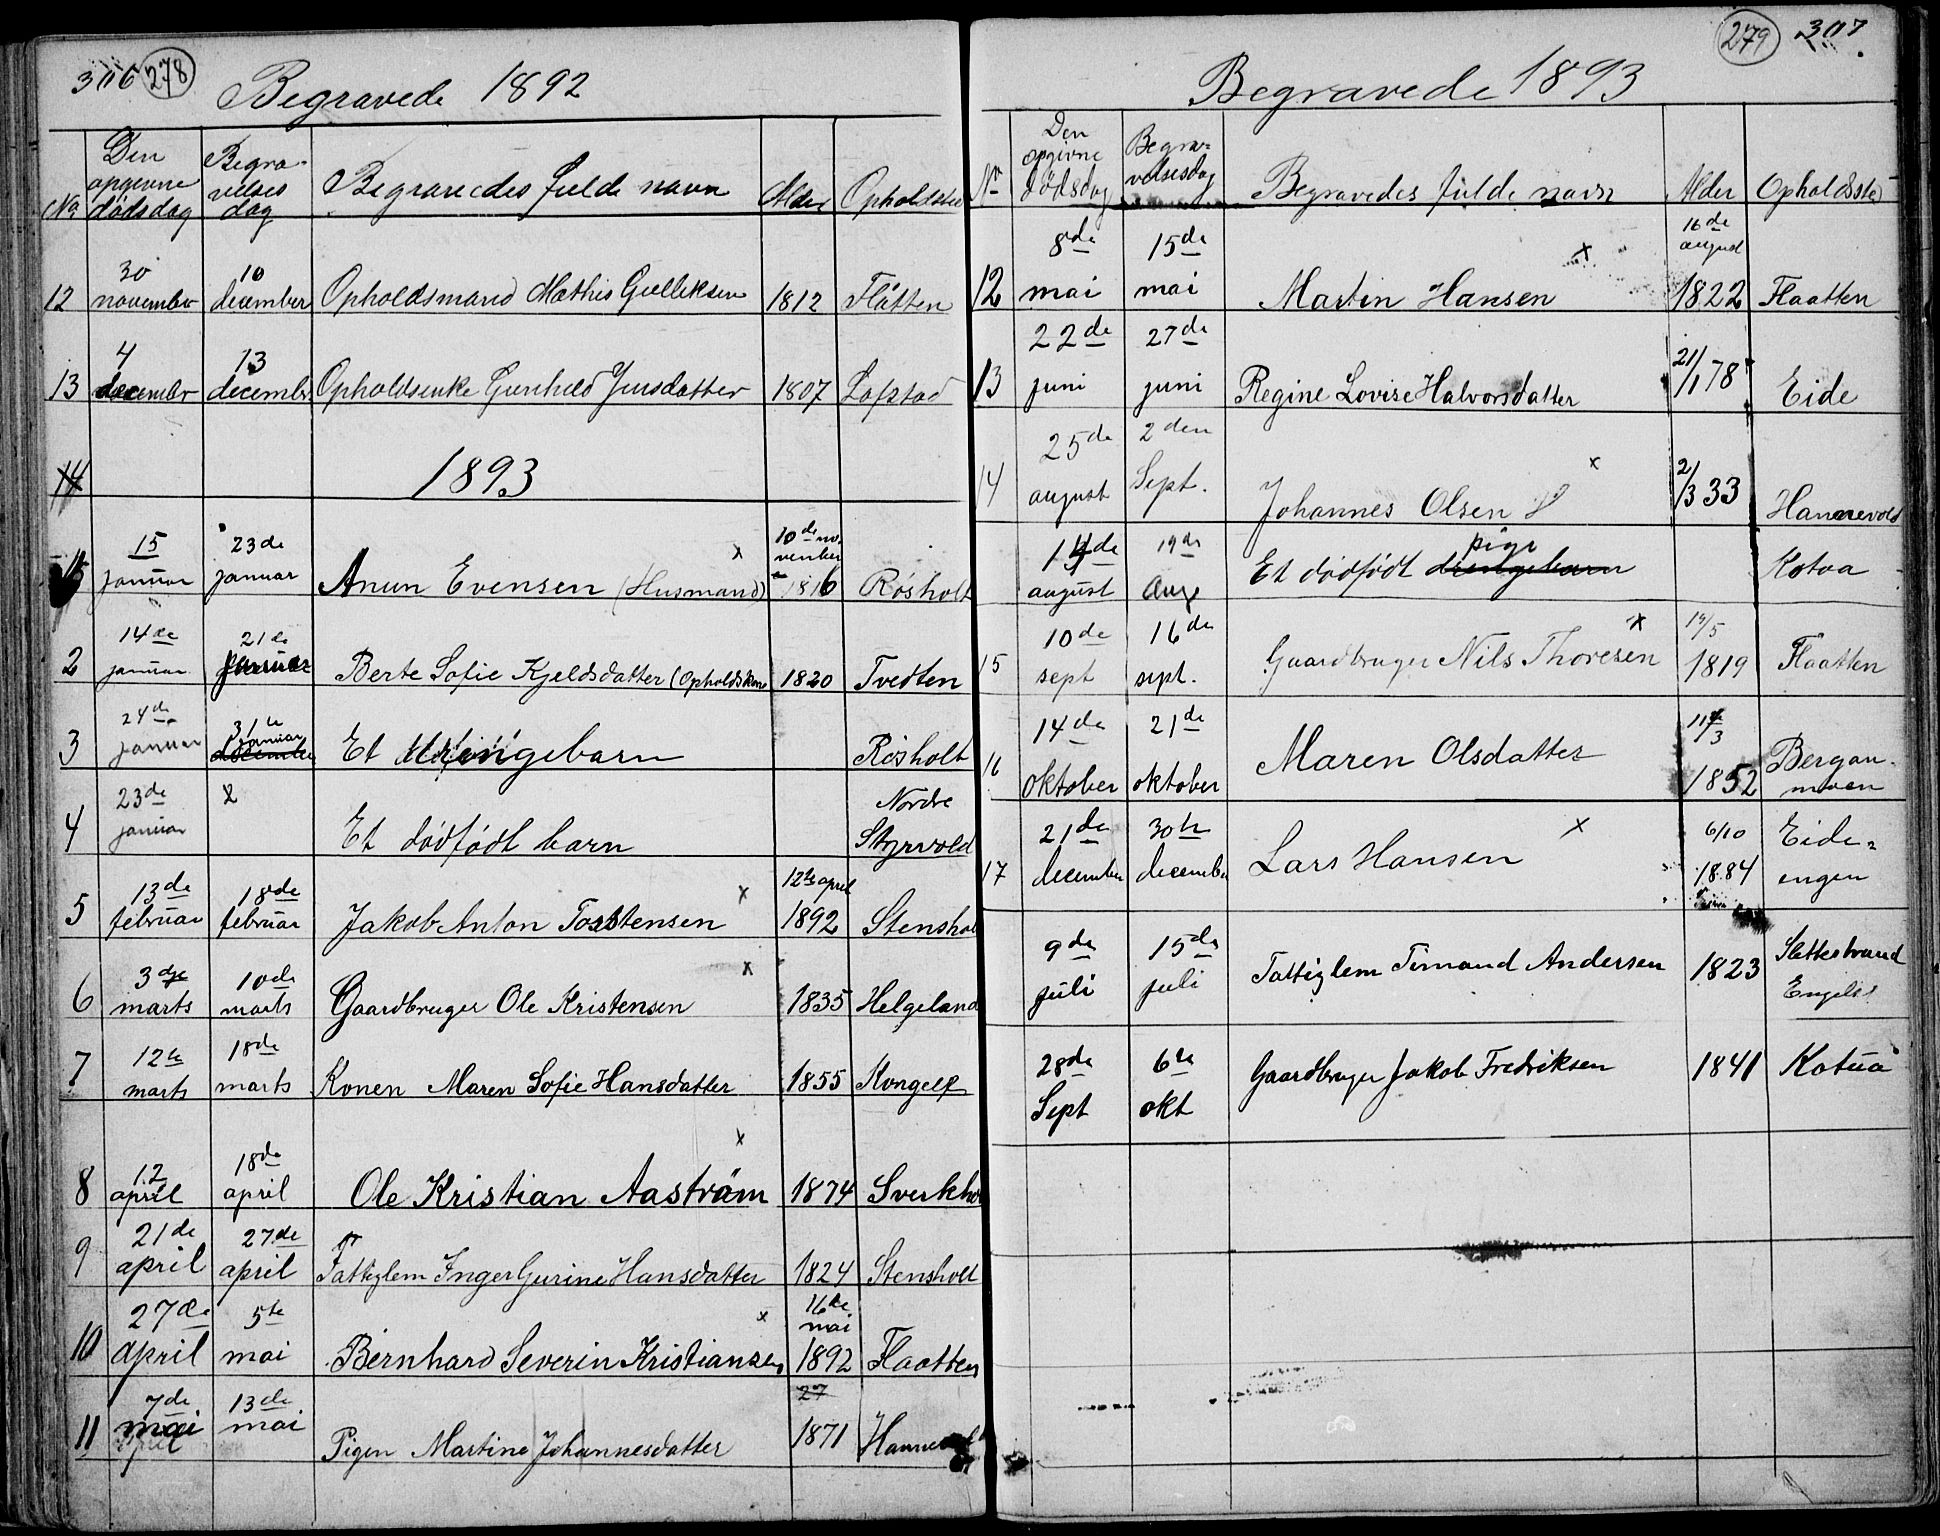 306 278
Begravede 1892
No Den opgivne dödsdag Begravelses dag Begravedes fulde navn Alder Opholdsted
12 30 november 10 december Opholdsmand Mathis Gulliksen 1812 Flåtten
13 4 december 13 december Opholdsenke Gunhild Jensdatter 1807 Lofstad
14
1893
1 15 januar 23de januar Anun Evensen (Husmand) x 10de november 1816 Rösholt
2 14de januar 21de januar Berte Sofie Kjeldsdatter (Opholdskone 1820 Tvedten
3 24de januar 31te januar december Et drengebarn Rösholt
4 23de januar x Et dödfödt barn Nordre Styrvold
5 13de februar 18de februar Jakob Anton Torstensen x 12te april 1892 Stenshol
6 3dje marts 10de marts Gaardbruger Ole Kristensen x 1835 Helgeland
7 12te marts 18de marts Konen Maren Sofie Hansdatter 1855 Kongelf
8 12 april 18de april Ole Kristian Aaström x 1874 Sverkho
9 21de april 27de april Fattiglem Inger Gurine Hansdatter 1824 Stensholt
10 27de april 5te mai Bernhard Severin Kristiansen x 16de mai 1892 Flaatten
11 7de mai 13de mai Pigen Martine Johannesdatter 27 1871
279 307
Begravede 1893
No Den opgivne dödsdag Begravelsesdag Begravedes fulde navn Alder Opholdsste
12 8de mai 15de mai Martin Hansen x 16de august 1822 Flaatten
13 22de juni 27de juni Regine Lovise Halvorsdatter 21/1 78 Eide
14 25de august 2den Sept. Johannes Olsen x 2/3 33 Hannevold
august 19de Aug Et dödfödt drengebarn pige Kotva
15 10de sept 16de sept. Gaardbruger Nils Thoresen x 19/5 1819 Flaatten
16 14de oktober 21de oktober Maren Olsdatter 11/3 1852 Bergan-moen
17 21de december 30te december Lars Hansen x 6/10 1884 Eide=engen
9de juli 15de juli Fattiglem Timand Andersen 1823 Slettestrand
28de Sept 6te okt Gaardbruger Jakob Fredriksen 1841 Kotua